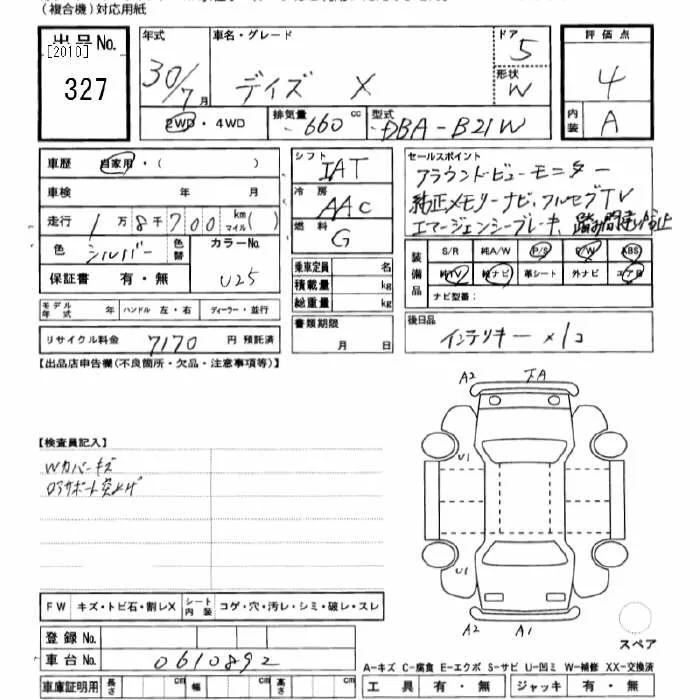 (複合機)対応用紙
出品No.
[2010]
327
年式
30/7月
車名・グレード
デイズ X
ドア
5
形状
W
評価点
4
内装
A
2WD・4WD
排気量
660cc
型式
DBA-B21W
車歴 自家用・( )
車検 年 月
走行 1万8千700km マイル( )
色 シルバー 色替
カラーNo.
U25
保証書 有・無
モデル年式 ハンドル 左・右 ディーラー・並行
リサイクル料金 7170 円 預託済
シフト
IAT
冷房
AAC
燃料
G
乗車定員 名
積載量 kg
総重量 kg
書類期限
月 日
セールスポイント
アラウンドビューモニター
純正メモリーナビ、フルセグTV
エマージェンシーブレーキ、踏み間違い防止
装備品
S/R 純A/W P/S P/W ABS
純TV 純ナビ 革シート 外ナビ エアB
ナビ型番:
後日品
インテリキー×1コ
【出品店申告欄(不良箇所・欠品・注意事項等)】
A2
A
U1
U1
A2 A1
スペア
【検査員記入】
Wカバーキズ
FW キズ・トビ石・割レX シート内装 コゲ・穴・汚レ・シミ・破レ・スレ
登録No.
車台No. 0610892
車庫証明用 長さ cm 幅 cm 高さ cm
A-キズ C-腐食 E-エクボ S-サビ U-凹ミ W-補修 XX-交換済
工具 有・無 ジャッキ 有・無